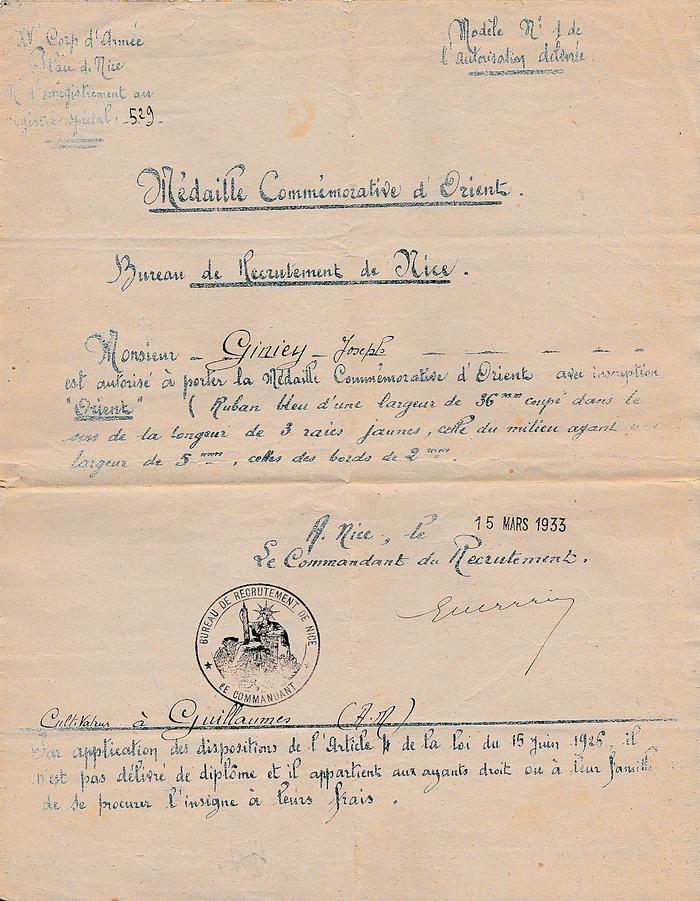 XV Corp d'Armée
Place de Nice
N° d'enregistrement au
registre spécial. 529.
Modèle N° 1 de
l'autorisation délivrée.
Médaille Commémorative d'Orient.
Bureau de Recrutement de Nice.
Monsieur Giniey Joseph
est autorisé à porter la Médaille Commémorative d'Orient avec inscription
"Orient" ( Ruban bleu d'une largeur de 36 mm coupé dans le
sens de la longeur de 3 raies jaunes, celle du milieu ayant une
largeur de 5 mm, celles des bords de 2 mm.
A Nice, le 15 MARS 1933
Le Commandant du Recrutement.
BUREAU DE RECRUTEMENT DE NICE
LE COMMANDANT
Cultivateur à Guillaumes (A.M)
Par application des dispositions de l'Article 4 de la loi du 15 Juin 1926, il
n'est pas délivré de diplôme et il appartient aux ayants droit ou à leur famille
de se procurer l'insigne à leurs frais.